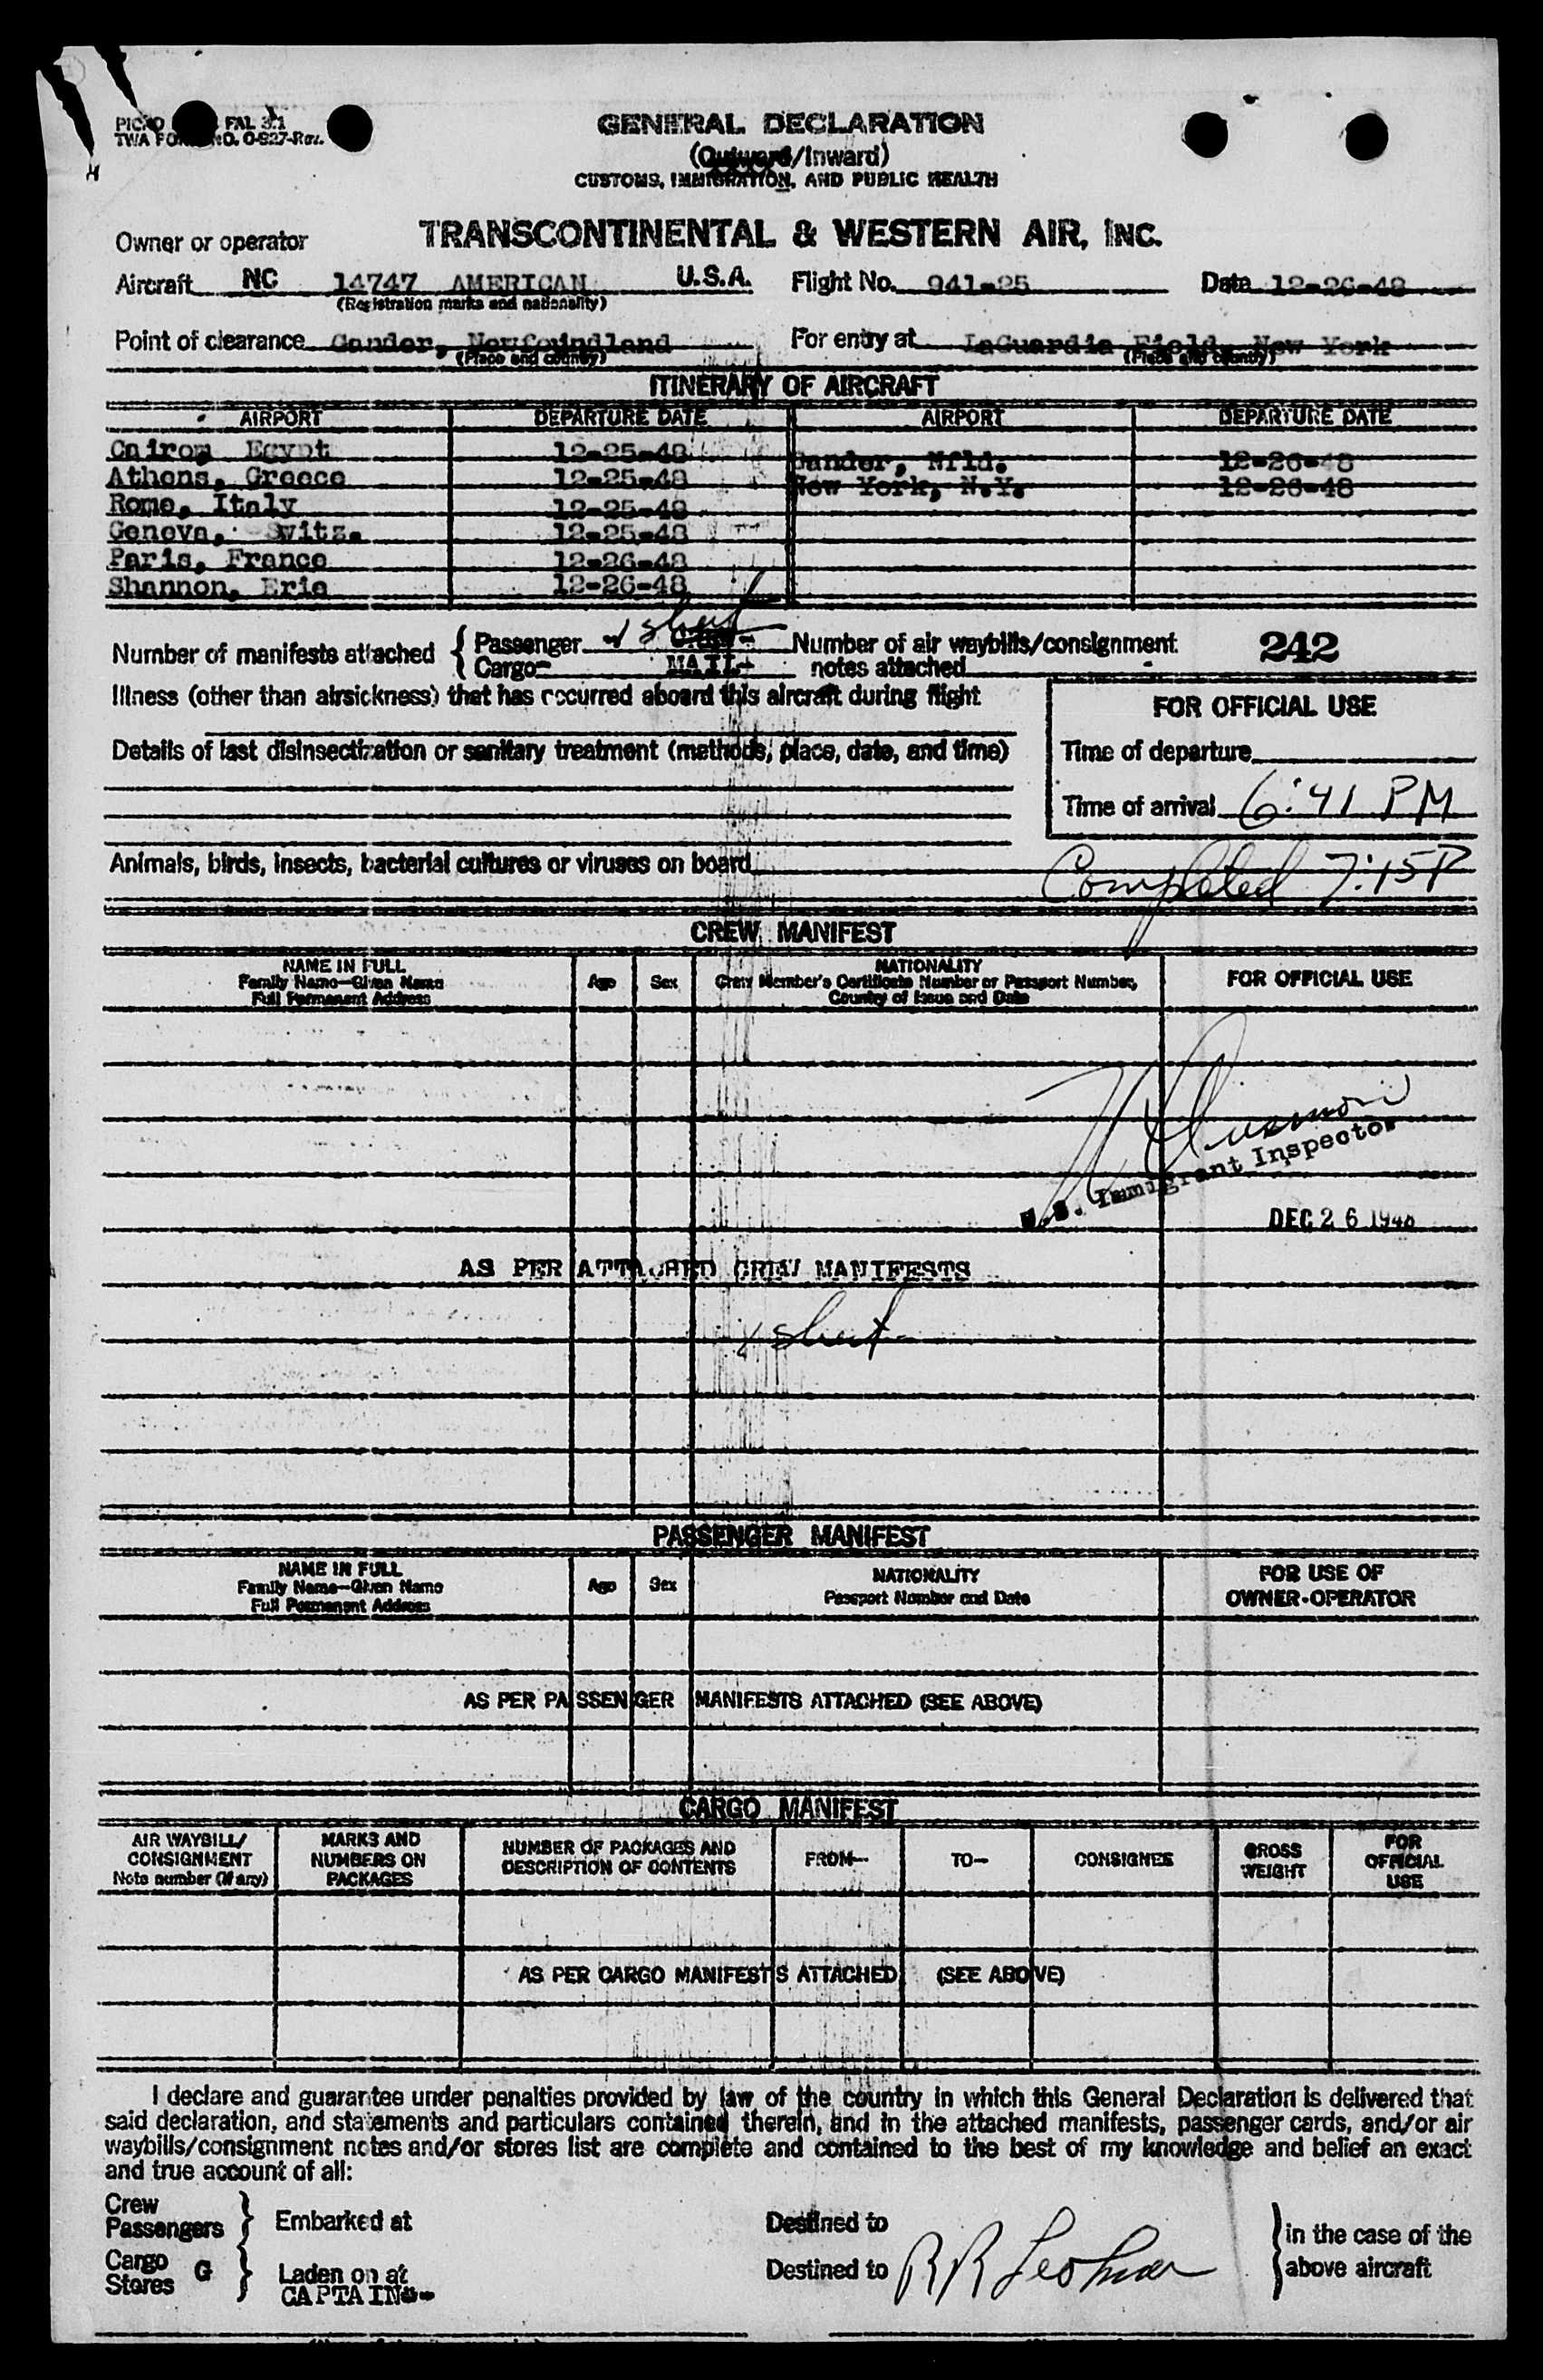 GENERAL DECLARATION
(Outward/Inward)
CUSTOMS, IMMIGRATION, AND PUBLIC HEALTH
FAL 3.1
TWA FORM NO. O-927-Rev.
Owner or operator TRANSCONTINENTAL & WESTERN AIR, INC.
Aircraft NC 14747 AMERICAN U.S.A. Flight No. 941-25 Date 12-26-48
(Registration marks and nationality)
Point of clearance Gander, Newfoundland For entry at LaGuardia Field, New York
(Place and country) (Place and country)
ITINERARY OF AIRCRAFT
AIRPORT DEPARTURE DATE AIRPORT DEPARTURE DATE
Cairo, Egypt 12-25-48 Gander, Nfld. 12-26-48
Athens, Greece 12-25-48 New York, N.Y. 12-26-48
Rome, Italy 12-25-48
Geneva, Switz. 12-25-48
Paris, France 12-26-48
Shannon, Erie 12-26-48
Number of manifests attached { Passenger 1 sheet Number of air waybills/consignment 242
Cargo- MAIL- notes attached
Illness (other than airsickness) that has occurred aboard this aircraft during flight
FOR OFFICIAL USE
Details of last disinsectization or sanitary treatment (methods, place, date, and time)
Time of departure
Time of arrival 6:41 PM
Animals, birds, insects, bacterial cultures or viruses on board
Completed 7:15P
CREW MANIFEST
NAME IN FULL
Family Name—Given Name
Full Permanent Address
Age Sex
NATIONALITY
Crew Member's Certificate Number or Passport Number,
Country of Issue and Date
FOR OFFICIAL USE
U.S. Immigrant Inspector
DEC 26 1948
AS PER ATTACHED CREW MANIFESTS
1 sheet-
PASSENGER MANIFEST
NAME IN FULL
Family Name—Given Name
Full Permanent Address
Age Sex
NATIONALITY
Passport Number and Date
FOR USE OF
OWNER-OPERATOR
AS PER PASSENGER MANIFESTS ATTACHED (SEE ABOVE)
CARGO MANIFEST
AIR WAYBILL/
CONSIGNMENT
Note number (if any)
MARKS AND
NUMBERS ON
PACKAGES
NUMBER OF PACKAGES AND
DESCRIPTION OF CONTENTS
FROM—
TO—
CONSIGNEE
GROSS
WEIGHT
FOR
OFFICIAL
USE
AS PER CARGO MANIFESTS ATTACHED (SEE ABOVE)
I declare and guarantee under penalties provided by law of the country in which this General Declaration is delivered that
said declaration, and statements and particulars contained therein, and in the attached manifests, passenger cards, and/or air
waybills/consignment notes and/or stores list are complete and contained to the best of my knowledge and belief an exact
and true account of all:
Crew
Passengers } Embarked at Destined to } in the case of the
Cargo
Stores G } Laden on at Destined to } above aircraft
CAPTAIN